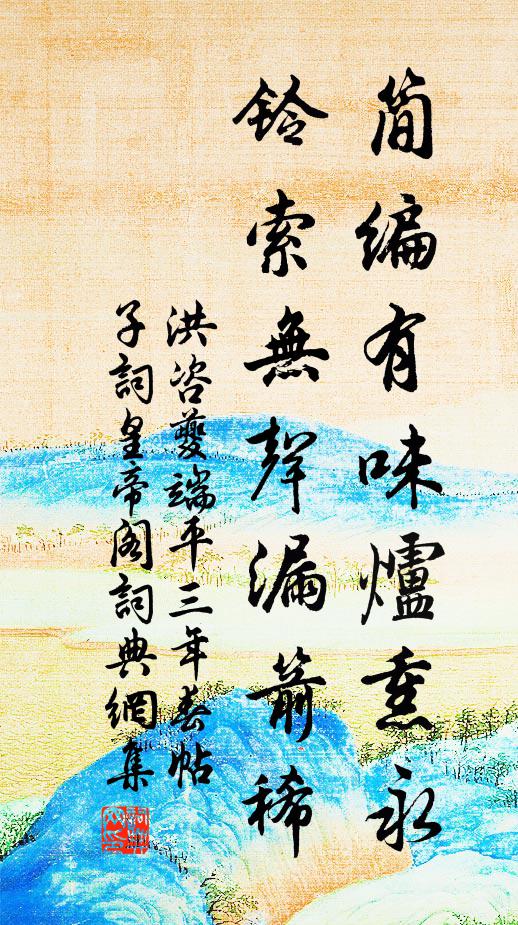 簡編有味爐熏永
鈴索無聲漏箭稀
洪咨夔端平三年春帖
子詞皇帝閣詞典網集